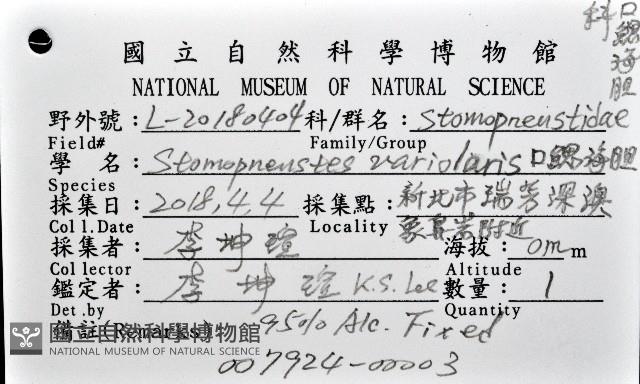 口鰓海胆
科
國立自然科學博物館
NATIONAL MUSEUM OF NATURAL SCIENCE
野外號：L-20180404 科/群名：Stomopneustidae
Field# Family/Group
學 名：Stomopneustes variolaris 口鰓海胆
Species
採集日：2018,4,4 採集點：新北市瑞芳深澳
Coll.Date Locality 象鼻岩附近
採集者：李坤瑄 海拔：0m m
Collector Altitude
鑑定者：李坤瑄 K.S. Lee 數量：1
Det.by Quantity
備註(Remarks) 95% Alc. Fixed
國立自然科學博物館
NATIONAL MUSEUM OF NATURAL SCIENCE
007924-00003